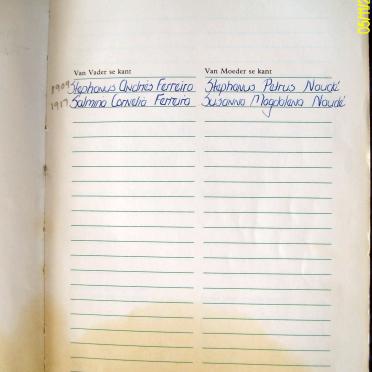 Van Vader se kant Van Moeder se kant
1909 Stephanus Andries Ferreira Stephanus Petrus Naudé
1917 Salmina Cornelia Ferreira Susanna Magdalena Naudé